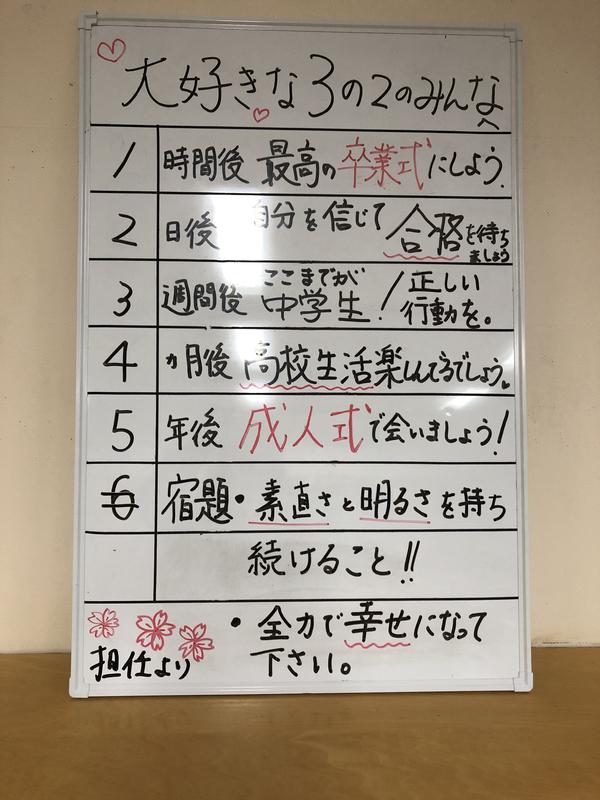 大好きな3の2のみんなへ
1 時間後 最高の卒業式にしよう。
2 日後 自分を信じて合格を待ちましょう
3 週間後 ここまでが中学生!正しい行動を。
4 ヵ月後 高校生活楽しんでるでしょう。
5 年後 成人式で会いましょう!
6 宿題・素直さと明るさを持ち
続けること!!
・全力で幸せになって
下さい。
担任より